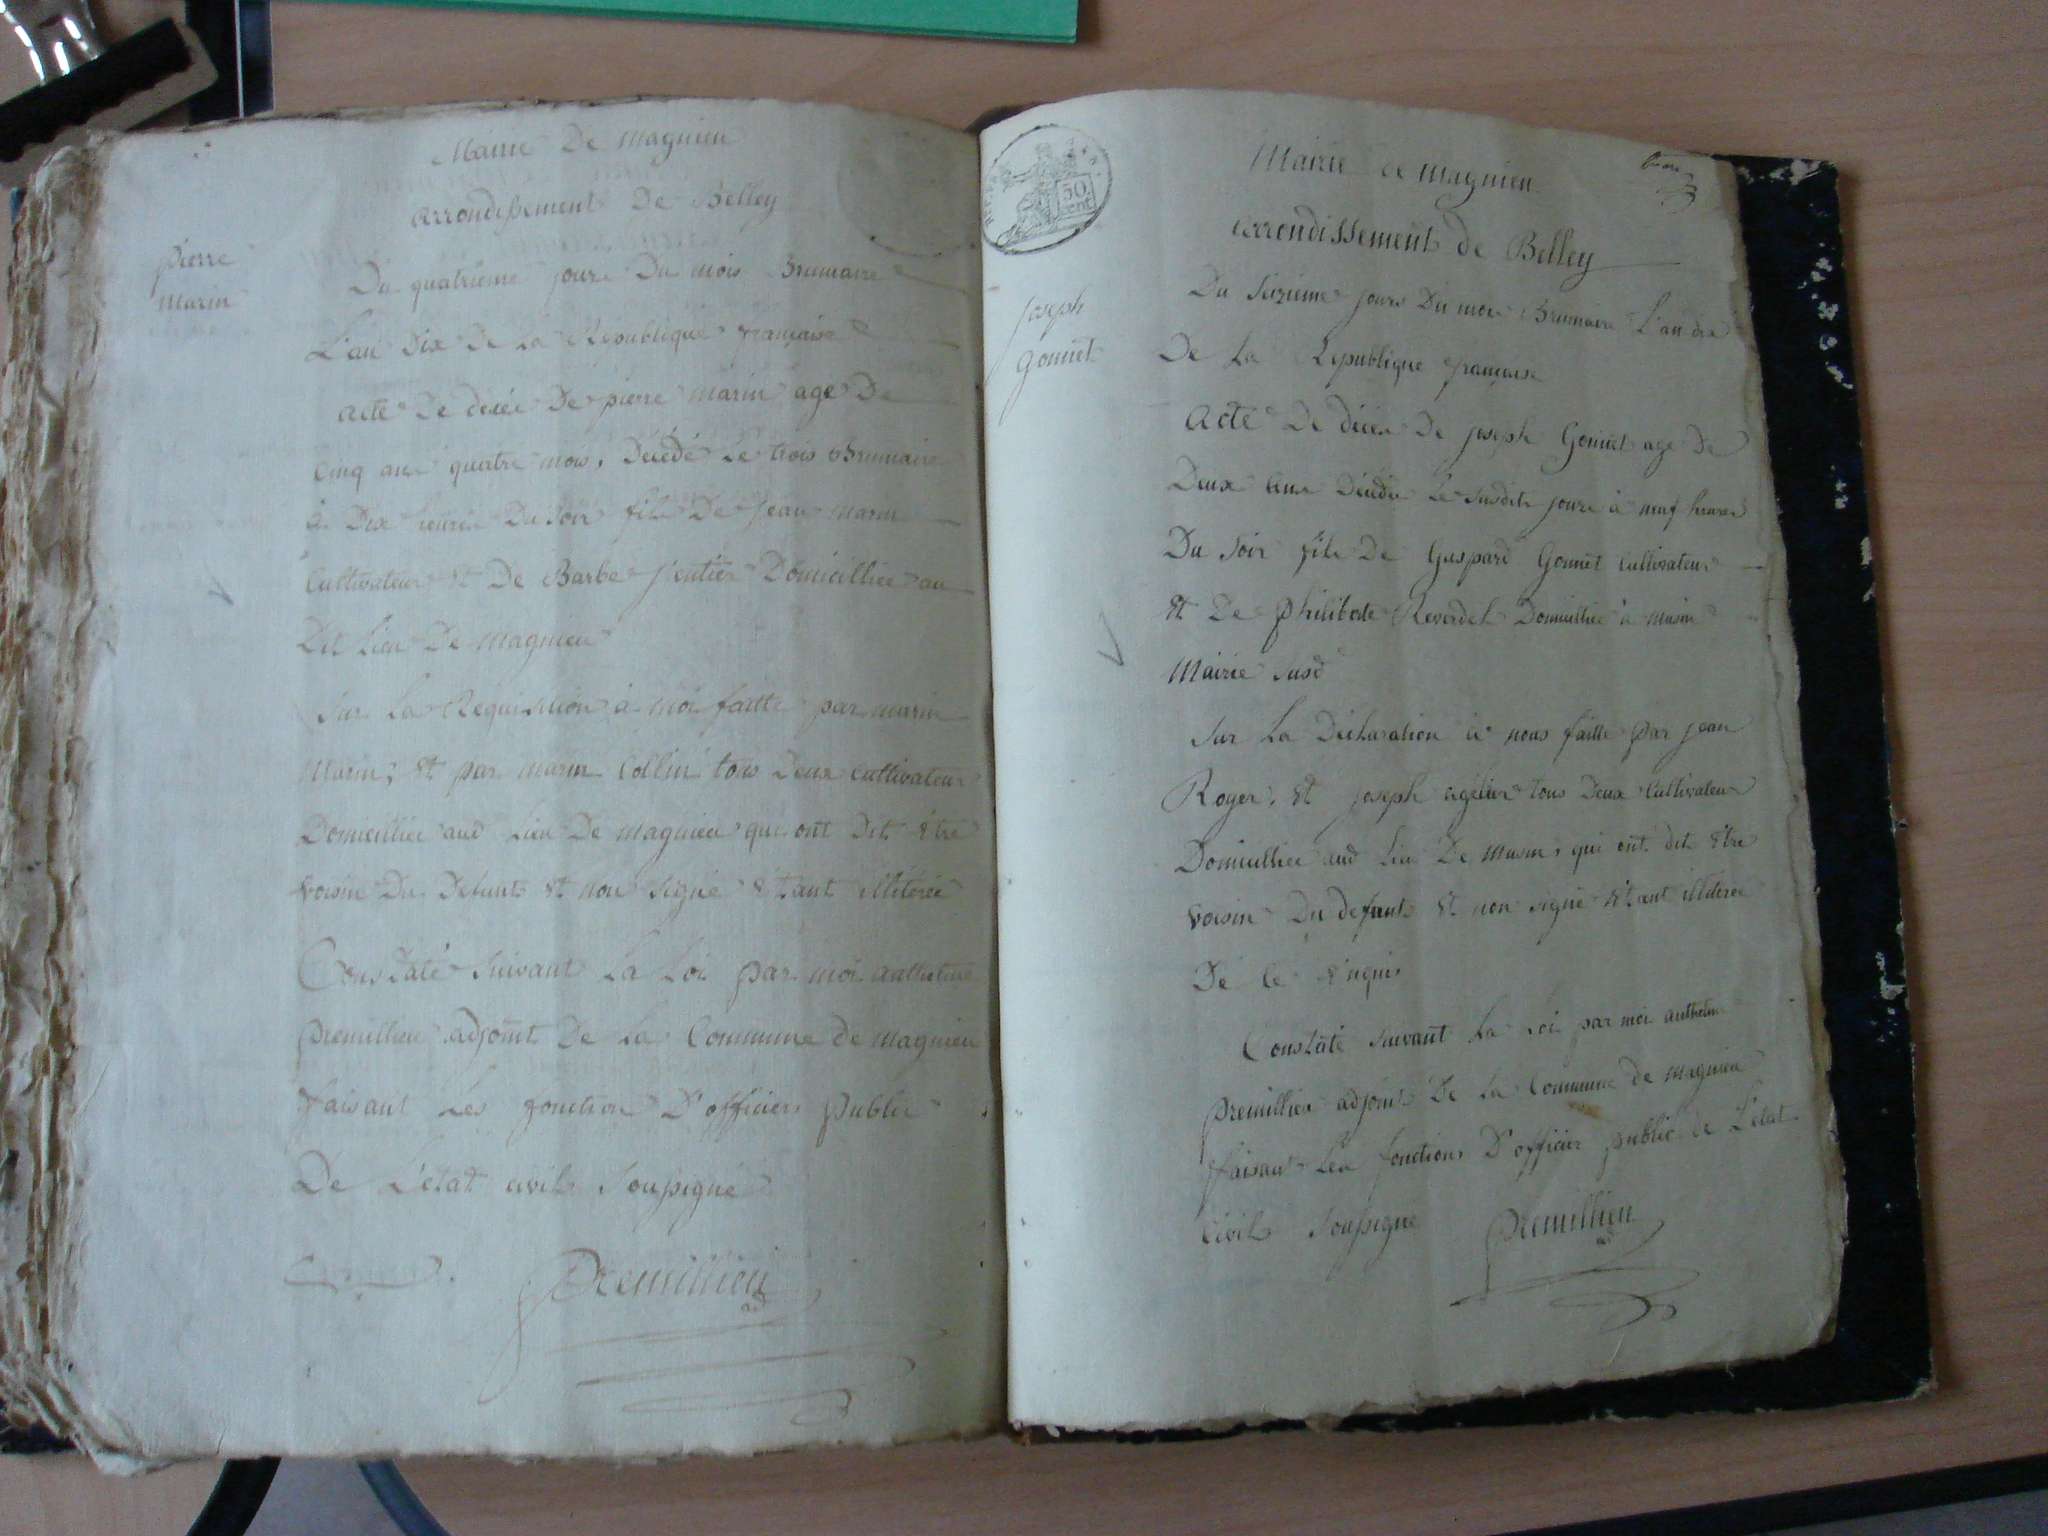 Mairie De magnieu
arrondissement De Belley
pierre
marin
Du quatrieme jour Du mois Brumaire
L'an Dix De La Republique francaise
acte De décée De pierre marin age De
Cinq ans quatre mois, Décédé Le trois Brumaire
à Dix heures Du Soir fils De Jean marin
Cultivateur Et De Barbe Domicilliée au
Dit Lieu De magnieu
Sur La Requisition à moi faitte par marin
Marin; Et par marin Collin tous Deux cultivateur
Domicilliée aud Lieu De magnieu qui ont Dit être
Voisin Du Defunt Et non Signé Etant illitérée
Constaté Suivant La Loi par moi anthelme
premillieu adjoint De La Commune de magnieu
faisant Les fonction D'officier public
De L'état civil Soussigné
Premillieu
adj
50
cent
Mairie de magnieu
arrondissement de Belley
Joseph
Gonnet
Du Seizieme jour Du mois Brumaire L'an dix
De La Republique française
Acte De décée De joseph Gonnet age De
Deux ans Décédée Le Susdit jour à neuf heures
Du Soir fils De Gaspard Gonnet cultivateur
Et De philiberte Reverdet Domicilliée à musin
Mairie Susd
Sur La Déclaration à nous faitte par jean
Roger, Et joseph tous Deux Cultivateur
Domicilliée aud Lieu De musin, qui ont dit Etre
Voisin Du defunt Et non signé Etant illiterée
De ce Enquis
Constaté suivant La Loi par moi anthelme
premillieu adjoint De La Commune de magnieu
faisant Les fonctions D'officier public de L'état
Civil Soussigné Premillieu
adj